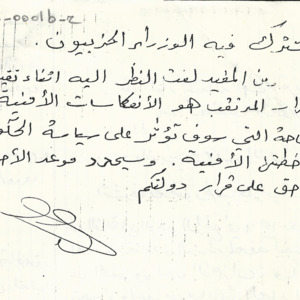 2-00016-
شترك فيه الوزراء الحزبيون.
من المفيد لفت النظر اليه اثناء تقي
ار المرتقب هو الانعكاسات الأمنية
احة التي سوف تؤثر على سياسة الحكو
خطتها الأمنية. وسيحدد موعد الا
حق على قرار دولتكم